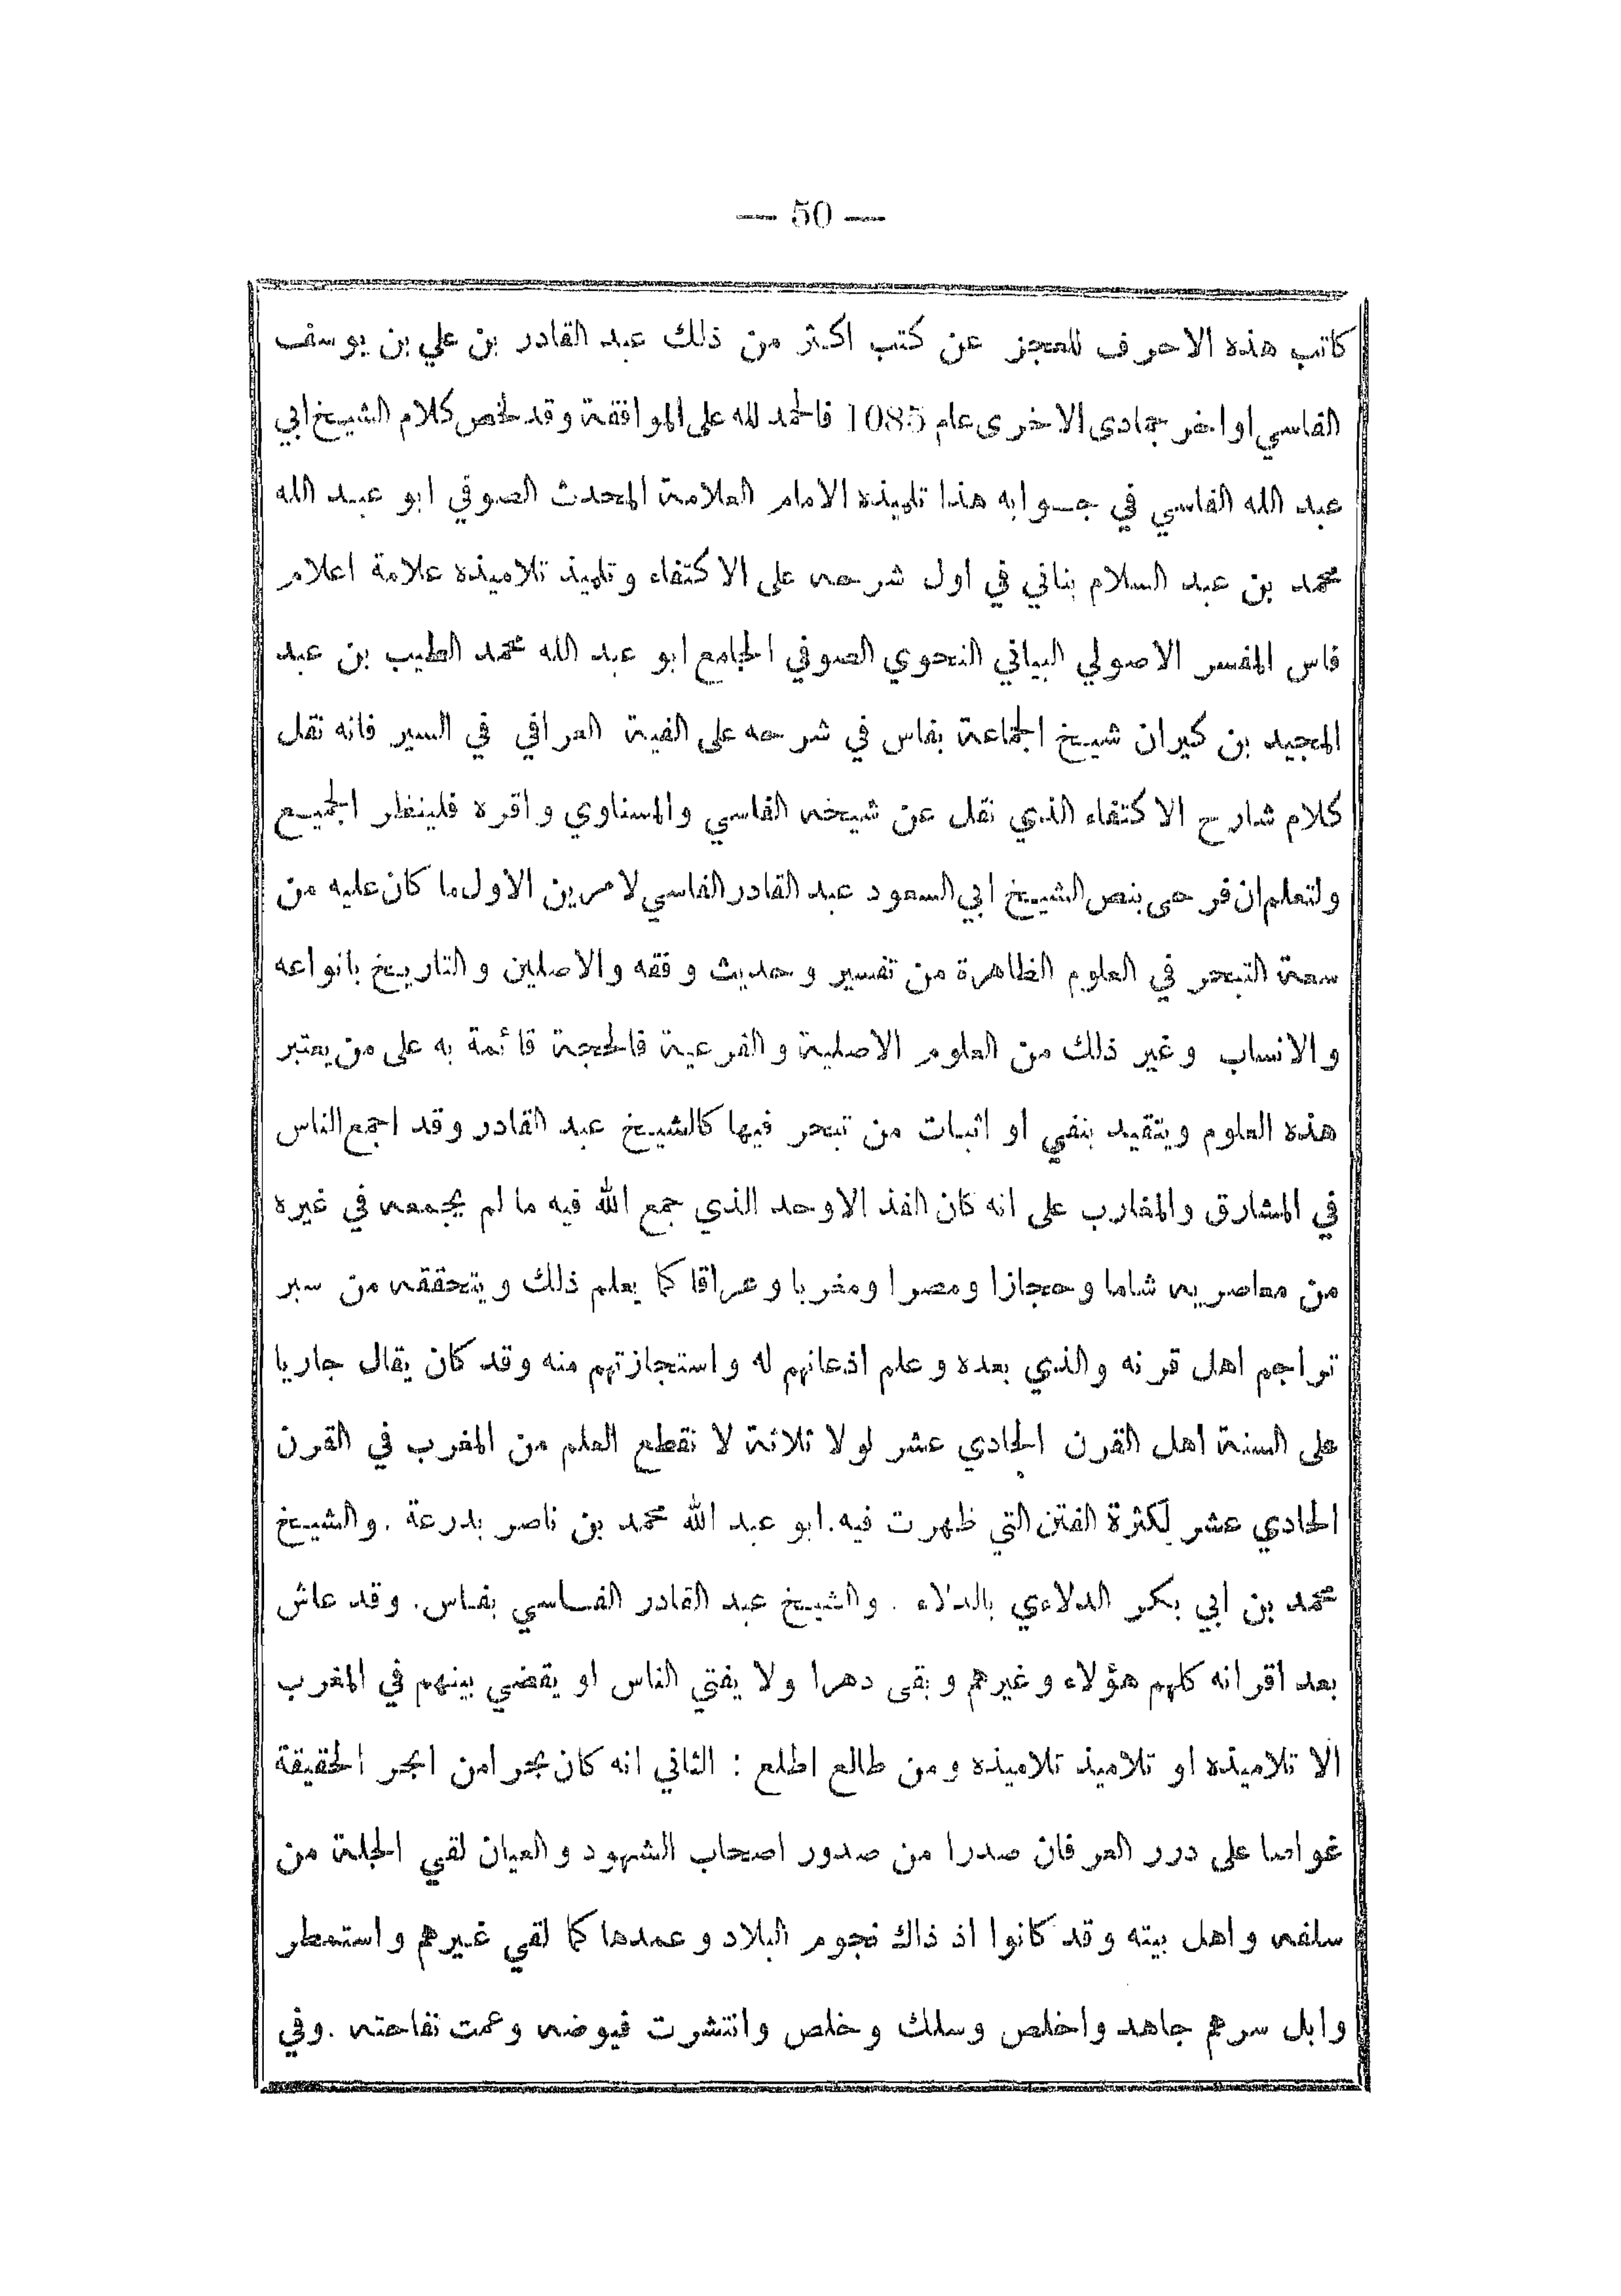 — 50 —
كاتب هذه الاحرف للعجز عن كتب اكثر من ذلك عبد القادر بن علي بن يوسف
الفاسي اواخر جمادى الاخرى عام 1085 فالحمد لله على الموافقة وقد لخص كلام الشيخ ابي
عبد الله الفاسي في جوابه هذا تلميذه الامام العلامة المحدث الصوفي ابو عبد الله
محمد بن عبد السلام بناني في اول شرحه على الاكتفاء وتلميذ تلاميذه علامة اعلام
فاس المفسر الاصولي البياني النحوي الصوفي الجامع ابو عبد الله محمد الطيب بن عبد
المجيد بن كيران شيخ الجماعة بفاس في شرحه على الفية العراقي في السير فانه نقل
كلام شارح الاكتفاء الذي نقل عن شيخه الفاسي والمسناوي واقره فلينظر الجميع
ولتعلم ان فرحى بنص الشيخ ابي السعود عبد القادر الفاسي لامرين الاول ما كان عليه من
سعة التبحر في العلوم الظاهرة من تفسير وحديث وفقه والاصلين والتاريخ بانواعه
والانساب وغير ذلك من العلوم الاصلية والفرعية فالحجة قائمة به على من يعتبر
هذه العلوم ويتقيد بنفي او اثبات من تبحر فيها كالشيخ عبد القادر وقد اجمع الناس
في المشارق والمغارب على انه كان الفذ الاوحد الذي جمع الله فيه ما لم يجمعه في غيره
من معاصريه شاما وحجازا ومصرا ومغربا وعراقا كما يعلم ذلك ويتحققه من سبر
تراجم اهل قرنه والذي بعده وعلم اذعانهم له واستجازتهم منه وقد كان يقال جاريا
على السنة اهل القرن الحادي عشر لولا ثلاثة لانقطع العلم من المغرب في القرن
الحادي عشر لكثرة الفتن التي ظهرت فيه. ابو عبد الله محمد بن ناصر بدرعة . والشيخ
محمد بن ابي بكر الدلاءي بالدلاء . والشيخ عبد القادر الفاسي بفاس. وقد عاش
بعد اقرانه كلهم هؤلاء وغيرهم وبقى دهرا ولا يفتي الناس او يقضي بينهم في المغرب
الا تلاميذه او تلاميذ تلاميذه ومن طالع اطلع : الثاني انه كان بحرا من ابحر الحقيقة
غواصا على درر العرفان صدرا من صدور اصحاب الشهود والعيان لقي الجلة من
سلفه واهل بيته وقد كانوا اذ ذاك نجوم البلاد وعمدها كما لقي غيرهم واستمطر
وابل سرهم جاهد واخلص وسلك وخلص وانتشرت فيوضه وعمت نفاحته . وفي